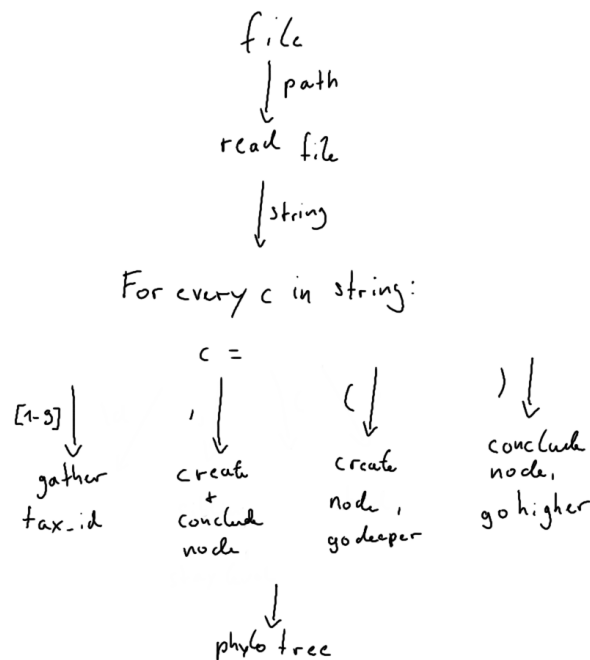 file
path
read file
string
For every c in string:
c =
[1-9]
,
(
)
gather
tax_id
create
+
conclude
node
create
node,
go deeper
conclude
node,
go higher
phylo tree